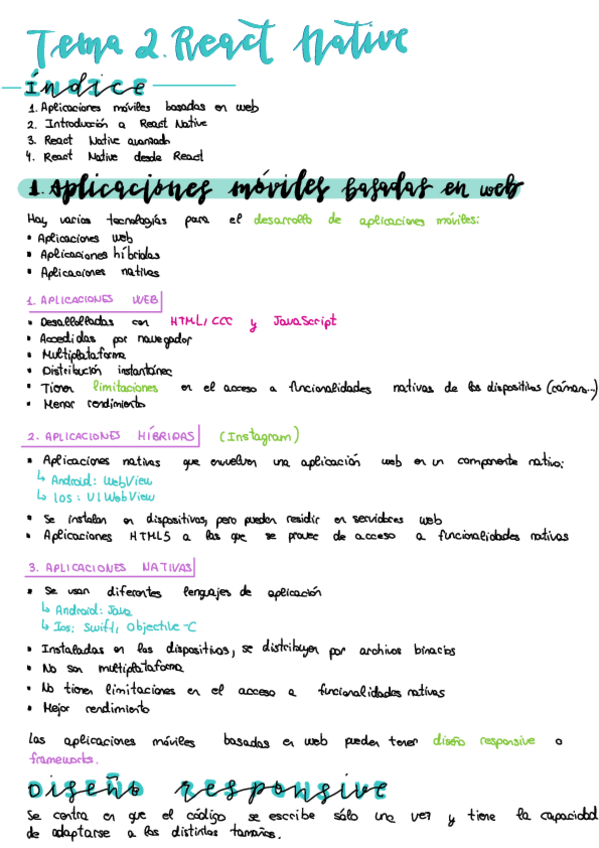 Tema 2. React Native
Índice
1. Aplicaciones móviles basadas en web
2. Introducción a React Native
3. React Native avanzado
4. React Native desde React
1. Aplicaciones móviles basadas en web
Hay varias tecnologías para el desarrollo de aplicaciones móviles:
• Aplicaciones web
• Aplicaciones híbridas
• Aplicaciones nativas
1. APLICACIONES WEB
• Desallolladas con HTML/CCC y JavaScript
• Accedidas por navegador
• Multiplataforma
• Distribución instantánea
• Tienen limitaciones en el acceso a funcionalidades nativas de los dispositivos (cámara...)
• Menor rendimiento
2. APLICACIONES HÍBRIDAS (Instagram)
• Aplicaciones nativas que envuelven una aplicación web en un componente nativo:
↳ Android: WebView
↳ Ios: UIWebView
• Se instalan en dispositivos, pero pueden residir en servidores web
• Aplicaciones HTML5 a las que se provee de acceso a funcionalidades nativas
3. APLICACIONES NATIVAS
• Se usan diferentes lenguajes de aplicación
↳ Android: Java
↳ Ios: Swift, Objective-C
• Instaladas en los dispositivos, se distribuyen por archivos binarios
• No son multiplataforma
• No tienen limitaciones en el acceso a funcionalidades nativas
• Mejor rendimiento
Las aplicaciones móviles basadas en web pueden tener diseño responsive o
frameworks.
Diseño responsive
Se centra en que el código se escribe sólo una vez y tiene la capacidad
de adaptarse a los distintos tamaños.